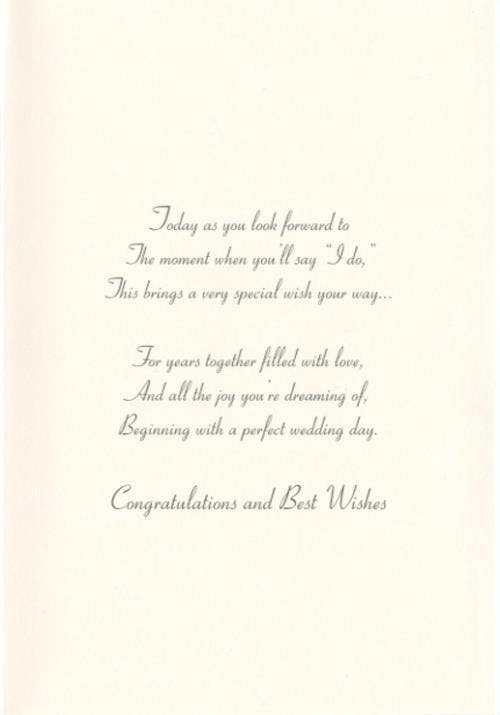 Today as you look forward to
The moment when you'll say "I do,"
This brings a very special wish your way...
For years together filled with love,
And all the joy you're dreaming of,
Beginning with a perfect wedding day.
Congratulations and Best Wishes